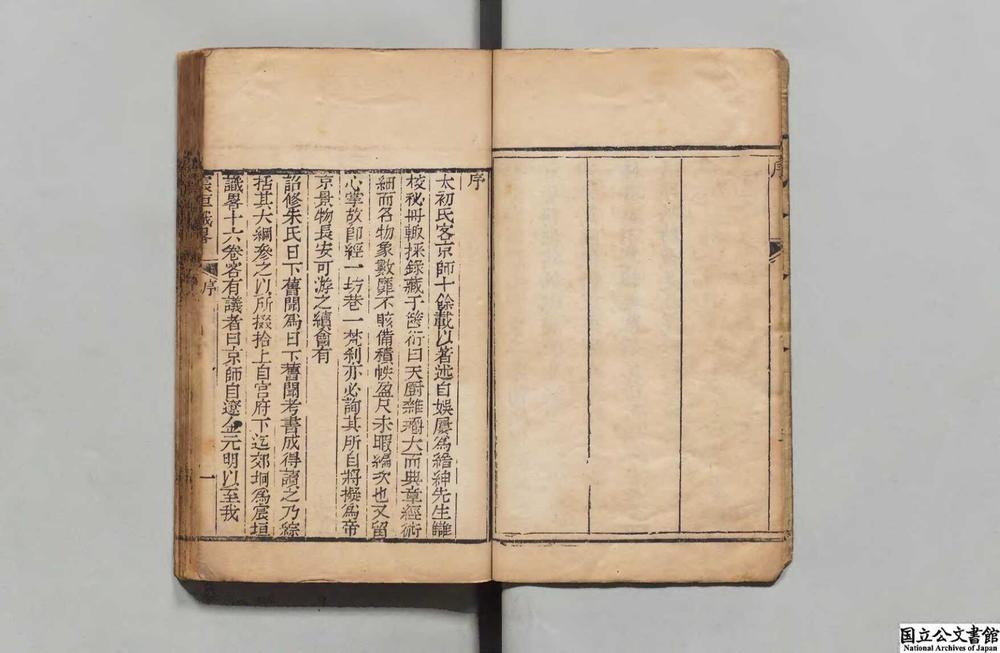 序
序
太初氏客京師十餘載以著述自娛屢爲縉紳先生讎
校秘冊輙採錄藏于篋衍曰天厨雜臠大而典章經術
細而名物象數靡不賅備積帙盈尺未暇編次也又留
心掌故卽經一坊巷一梵刹亦必詢其所自將擬爲帝
京景物長安可游之續會有
詔修朱氏日下舊聞爲日下舊聞考書成得讀之乃綜
括其大綱參之以所掇拾上自宮府下迄郊坰爲宸垣
識畧十六卷客有議者曰京師自遼金元明以至我
宸垣識畧
序
一
国立公文書館
National Archives of Japan